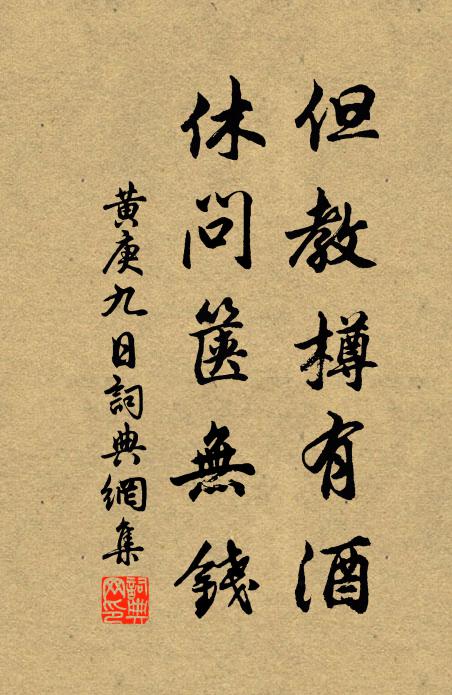 但教樽有酒
休問篋無錢
黄庚九日詞典網集
詞典网印